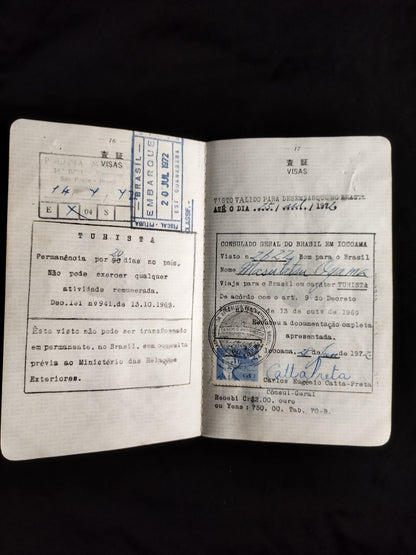 16
査証
VISAS
E X 04 S
BRASIL
EMBARQUE
20 JUL 1972
EST GUANABARA
FISCAL - PITURA
CLASSIF.
TURISTA
Permanência por 90 dias no país.
Não pode exercer qualquer
atividade remunerada.
Dec.lei nº941, de 13.10.1969.
Êste visto não pode ser transformado
em permanente, no Brasil, sem consulta
prévia ao Ministério das Relações
Exteriores.
17
査証
VISAS
VISTO VALIDO PARA DESEMBARQUE NO BRASIL
ATÉ O DIA
CONSULADO GERAL DO BRASIL EM IOCOAMA
Visto n. Bom para o Brasil
Nome Masutatsu Oyama
Viaja para o Brasil em caráter TURISTA
De acôrdo com o art. 9 do Decreto
de 13 de outº de 1969
Recebeu a documentação completa
apresentada.
Iocoama, de 1972
Catta Preta
Carlos Eugenio Catta-Preta
Cônsul-Geral
Recebi Cr$2.00. ouro
ou Yens: 750, 00. Tab. 70-B.